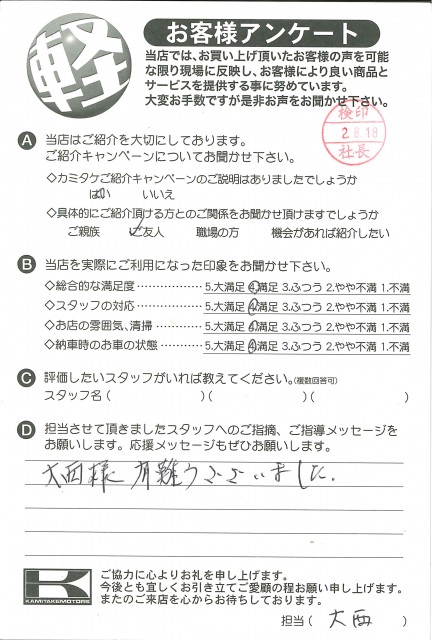 軽
お客様アンケート
当店では、お買い上げ頂いたお客様の声を可能
な限り現場に反映し、お客様により良い商品と
サービスを提供する事に努めています。
大変お手数ですが是非お声をお聞かせ下さい。
検印
2.8.18
社長
A 当店はご紹介を大切にしております。
ご紹介キャンペーンについてお聞かせ下さい。
◇カミタケご紹介キャンペーンのご説明はありましたでしょうか
はい いいえ
◇具体的にご紹介頂ける方とのご関係をお聞かせ頂けますでしょうか
ご親族 ご友人 職場の方 機会があれば紹介したい
B 当店を実際にご利用になった印象をお聞かせ下さい。
◇総合的な満足度 ・・・・・・・・・・・・・・ 5.大満足 4.満足 3.ふつう 2.やや不満 1.不満
◇スタッフの対応 ・・・・・・・・・・・・・・ 5.大満足 4.満足 3.ふつう 2.やや不満 1.不満
◇お店の雰囲気、清掃 ・・・・・・・・・ 5.大満足 4.満足 3.ふつう 2.やや不満 1.不満
◇納車時のお車の状態 ・・・・・・・・・ 5.大満足 4.満足 3.ふつう 2.やや不満 1.不満
C 評価したいスタッフがいれば教えてください。(複数回答可)
スタッフ名 ( )( )( )
D 担当させて頂きましたスタッフへのご指摘、ご指導メッセージを
お願いします。応援メッセージもぜひお願いします。
大西様 有難うございました.
K
KAMITAKEMOTORS
ご協力に心よりお礼を申し上げます。
今後とも宜しくお引き立てご愛顧の程お願い申し上げます。
またのご来店を心からお待ちしております。
担当 ( 大西 )